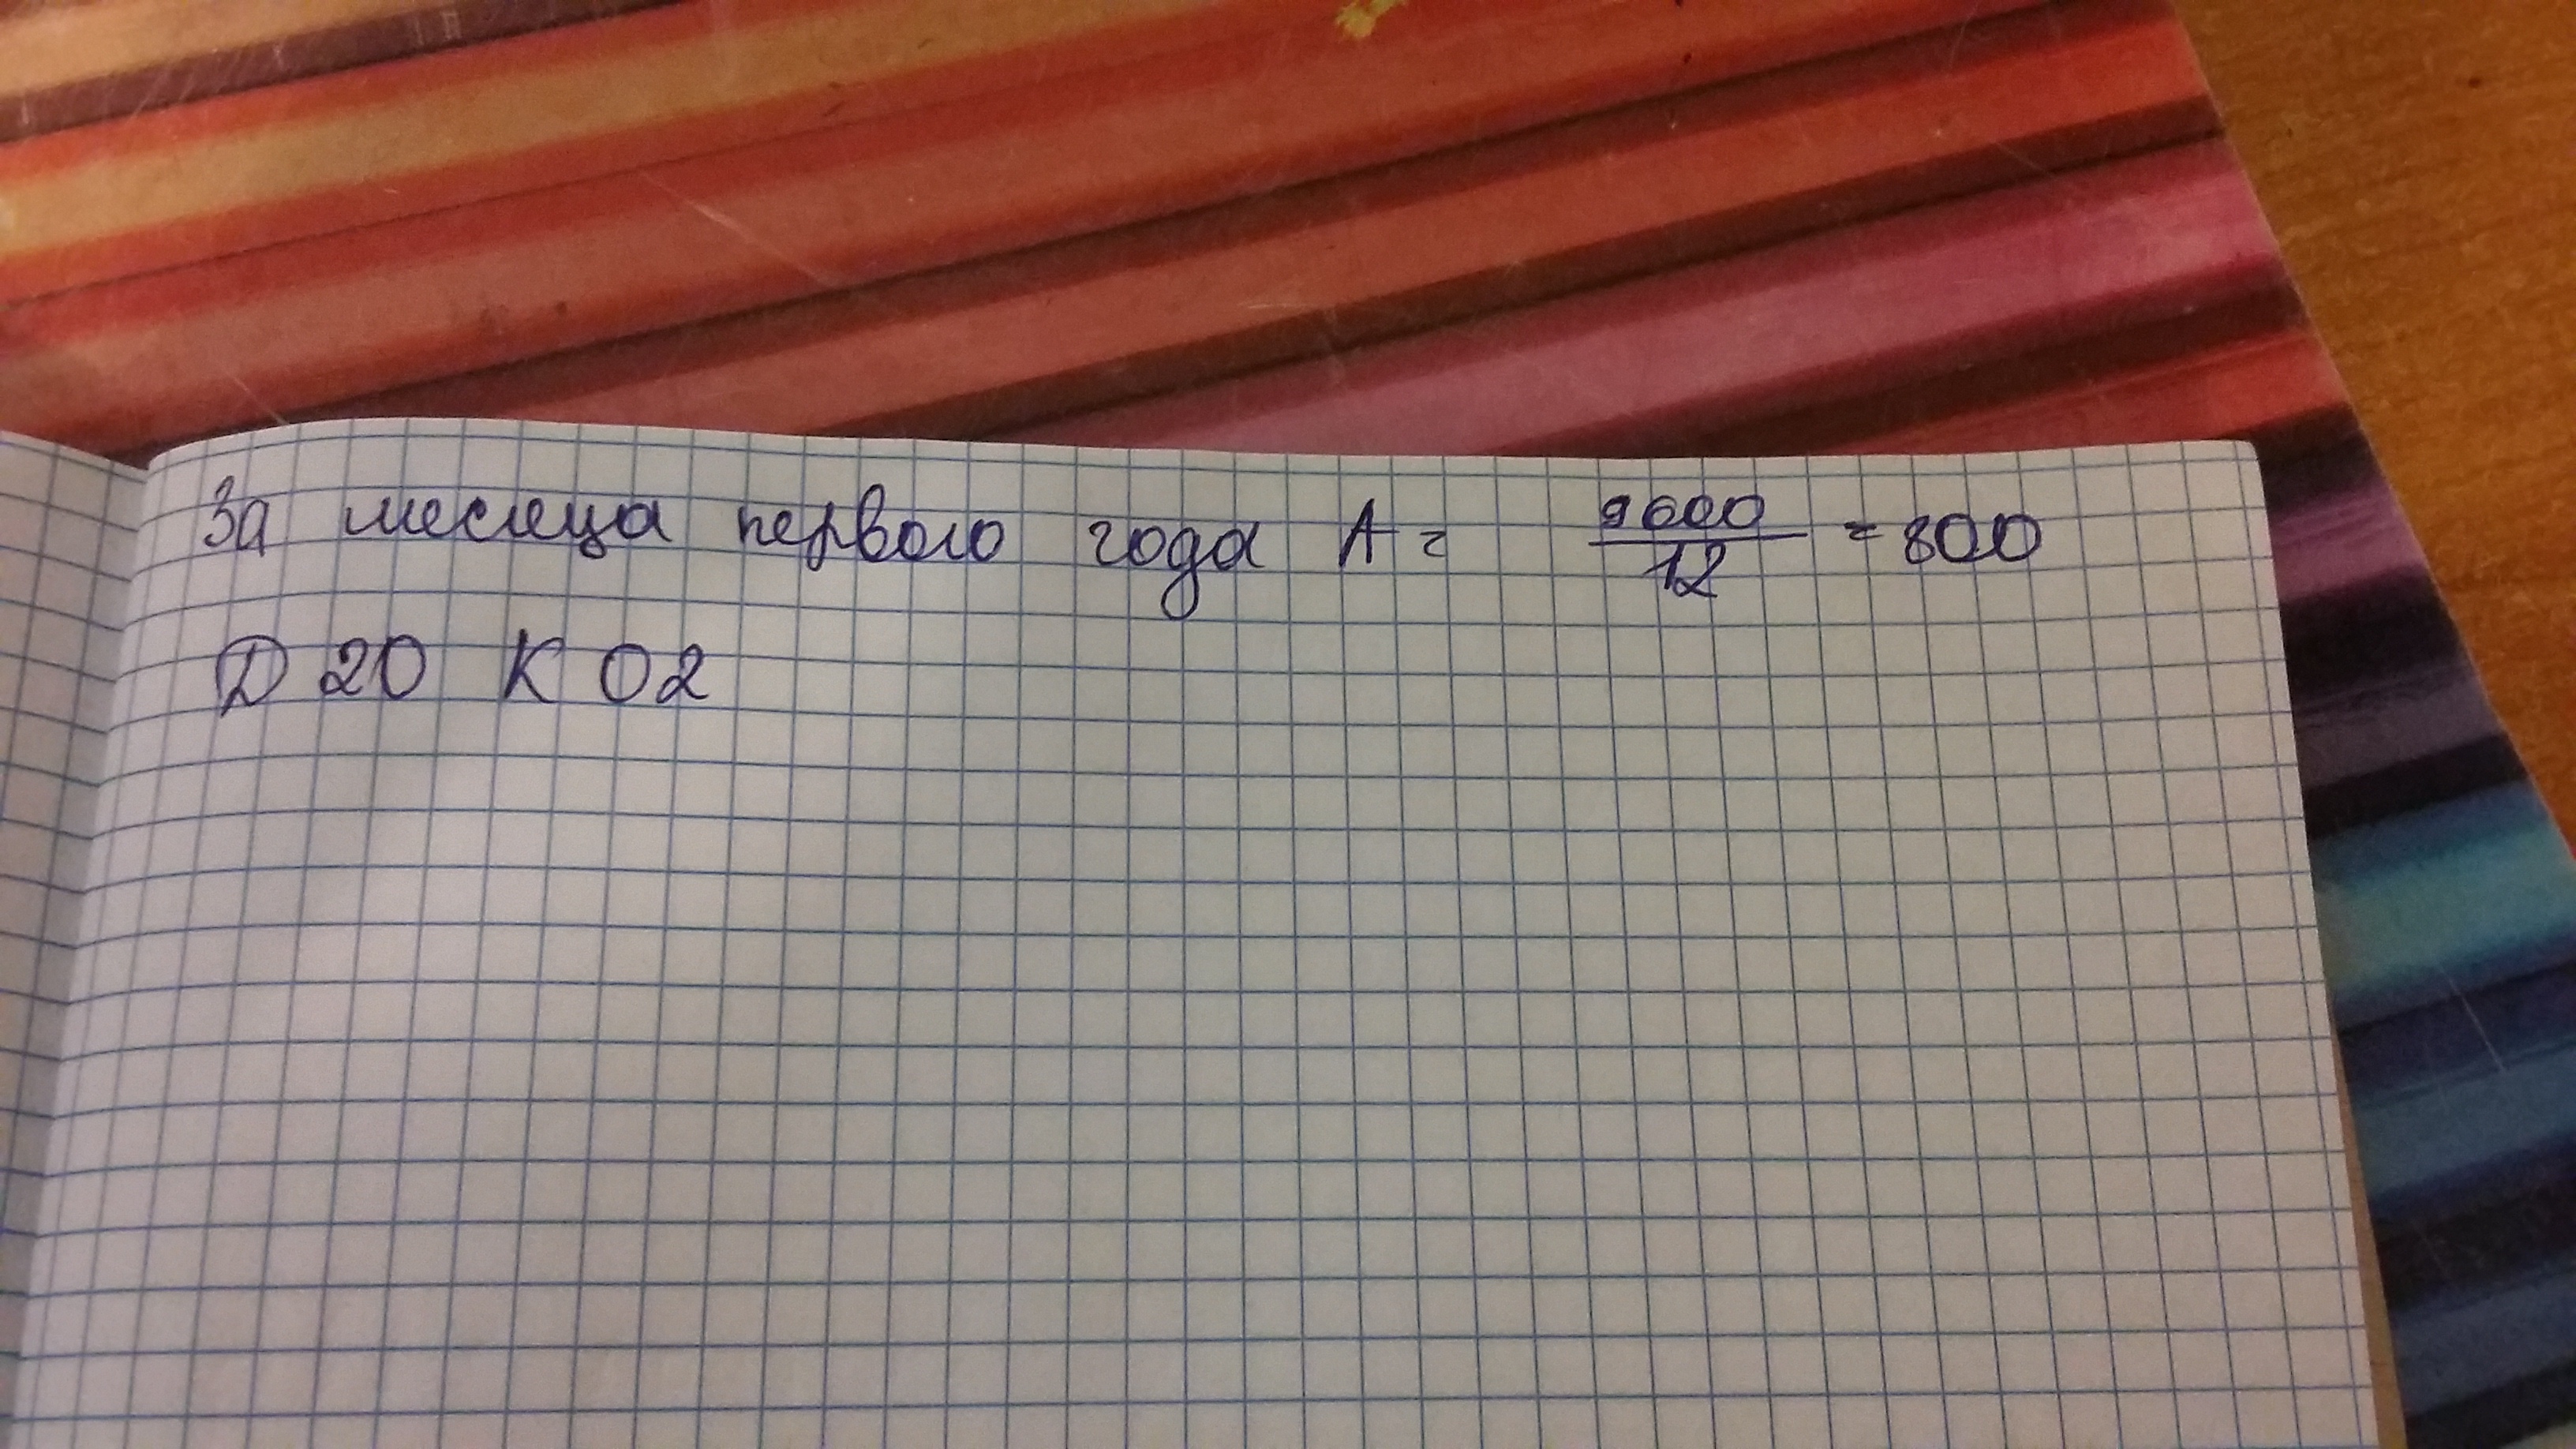 За месеца первого года А = 9600/12 = 800
Д 20 К 02